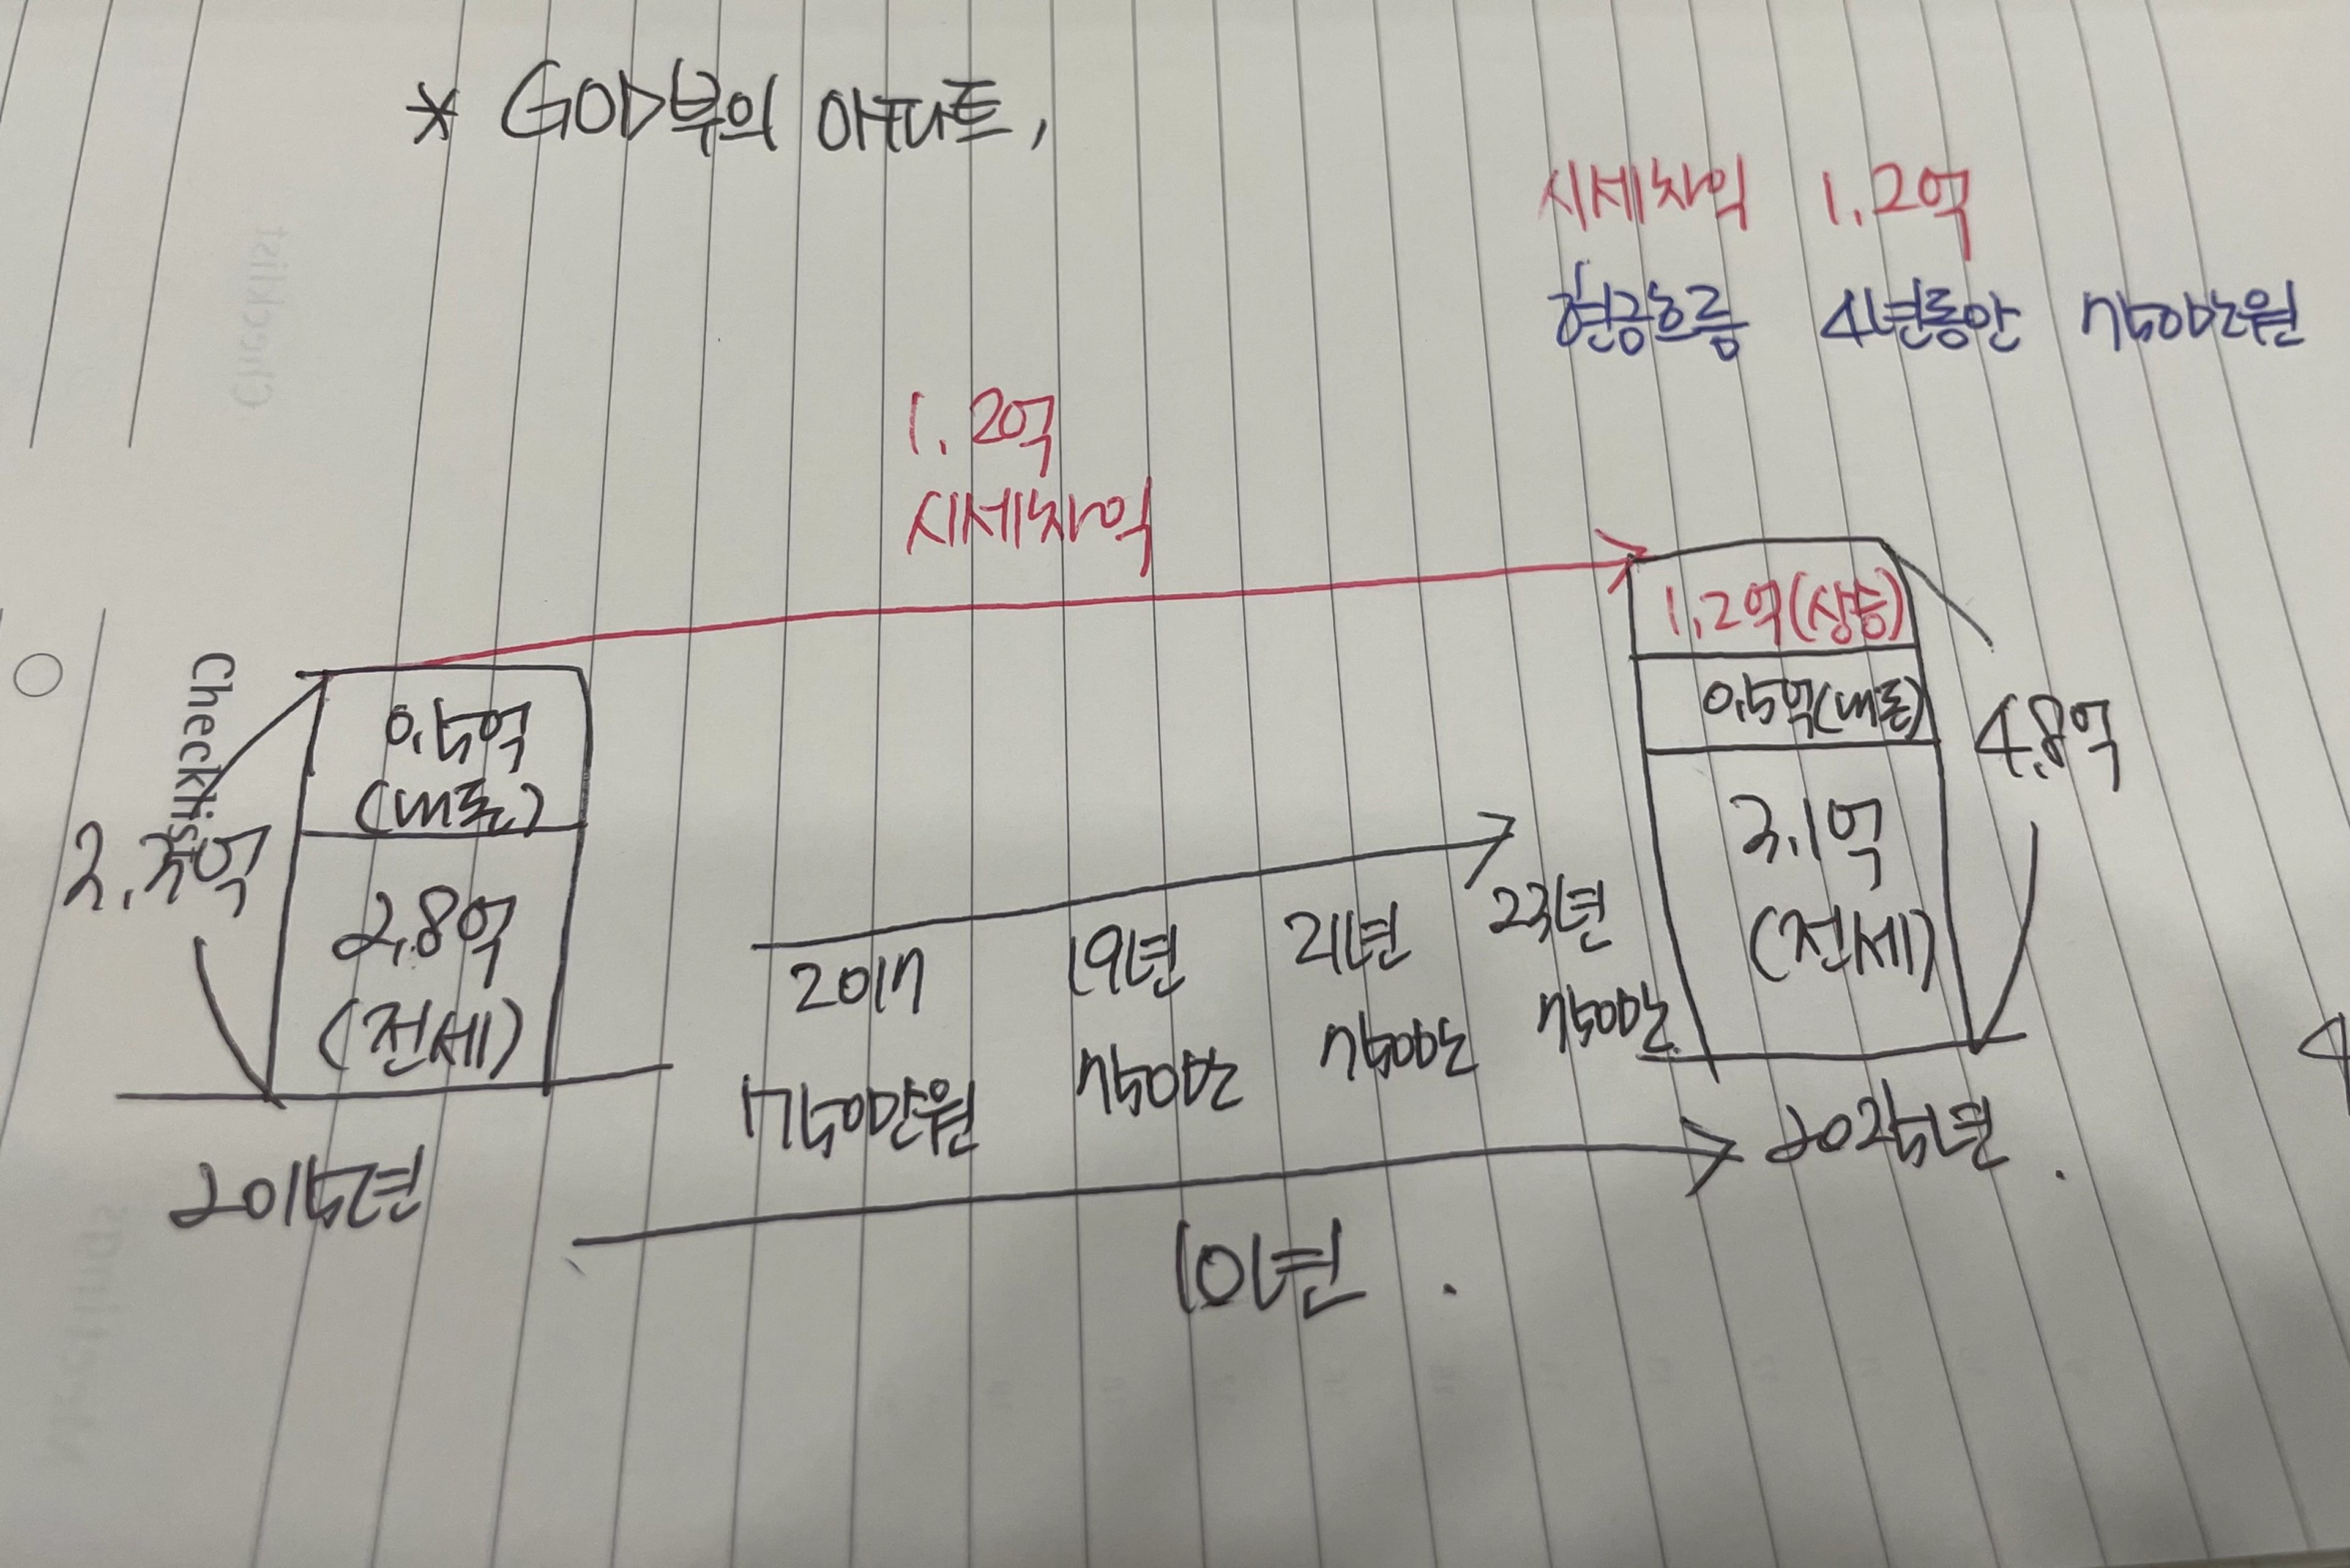 * GOD부의 아파트,
시세차익 1.2억
현금흐름 4년동안 7500만원
1.2억
시세차익
1.2억(상승)
0.5억(대출)
3.1억
(전세)
4.8억
2025년.
0.5억
(대출)
2.8억
(전세)
3.3억
2015년
2017 19년 21년 23년
1750만원 750만 750만 7500만
10년.
Checklist